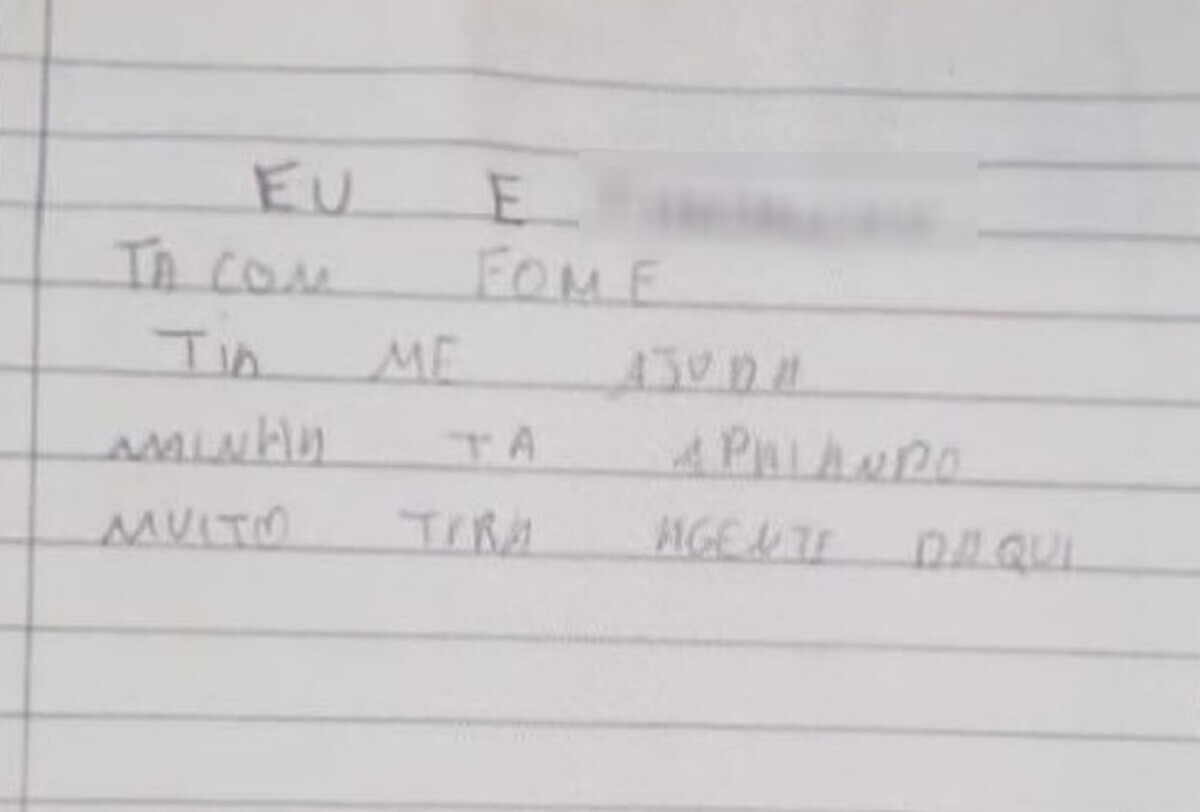 EU E
TA COM FOME
TIA ME AJUDA
MINHA TA APHIANDO
MUITO TIRA AGENTE DAQUI